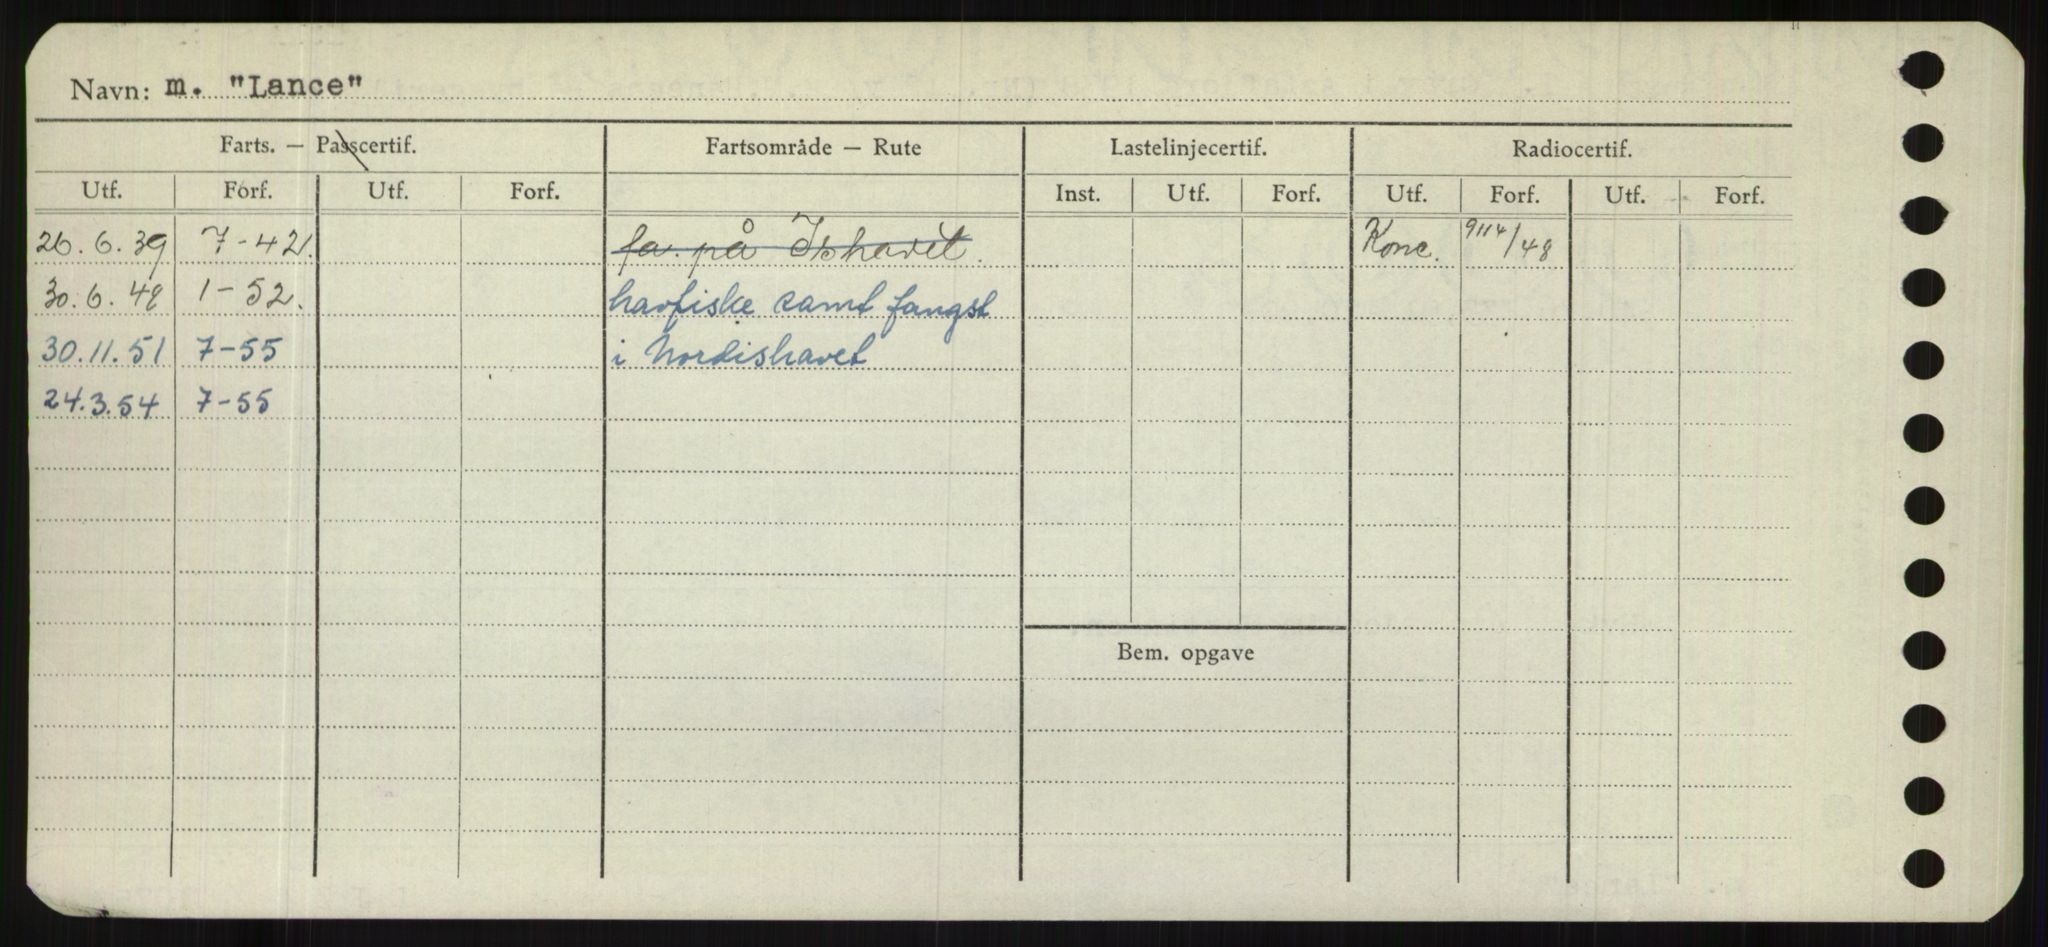 Navn: m. "Lance"
Farts. — Passcertif. Fartsområde — Rute Lastelinjecertif. Radiocertif.
Utf. Forf. Utf. Forf. Inst. Utf. Forf. Utf. Forf. Utf. Forf.
26.6.39 7-42. fa. på Ishavet. Konc. 9114/48
30.6.48 1-52. havfiske samt fangst
30.11.51 7-55 i Nordishavet
24.3.54 7-55
Bem. opgave